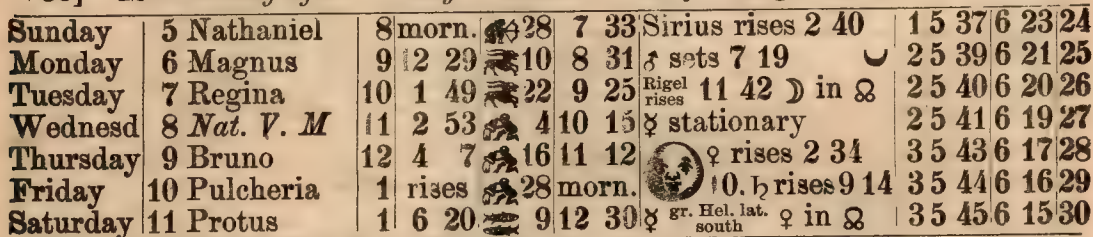 Sunday 5 Nathaniel 8 morn. 28 7 33 Sirius rises 2 40 1 5 37 6 23 24
Monday 6 Magnus 9 12 29 10 8 31 ♂ sets 7 19 2 5 39 6 21 25
Tuesday 7 Regina 10 1 49 22 9 25 Rigel rises 11 42 ☽ in ☊ 2 5 40 6 20 26
Wednesd 8 Nat. V. M 11 2 53 4 10 15 ☿ stationary 2 5 41 6 19 27
Thursday 9 Bruno 12 4 7 16 11 12 ♀ rises 2 34 3 5 43 6 17 28
Friday 10 Pulcheria 1 rises 28 morn. 10. ♄ rises 9 14 3 5 44 6 16 29
Saturday 11 Protus 1 6 20 9 12 30 ☿ gr. Hel. lat. south ♀ in ☊ 3 5 45 6 15 30